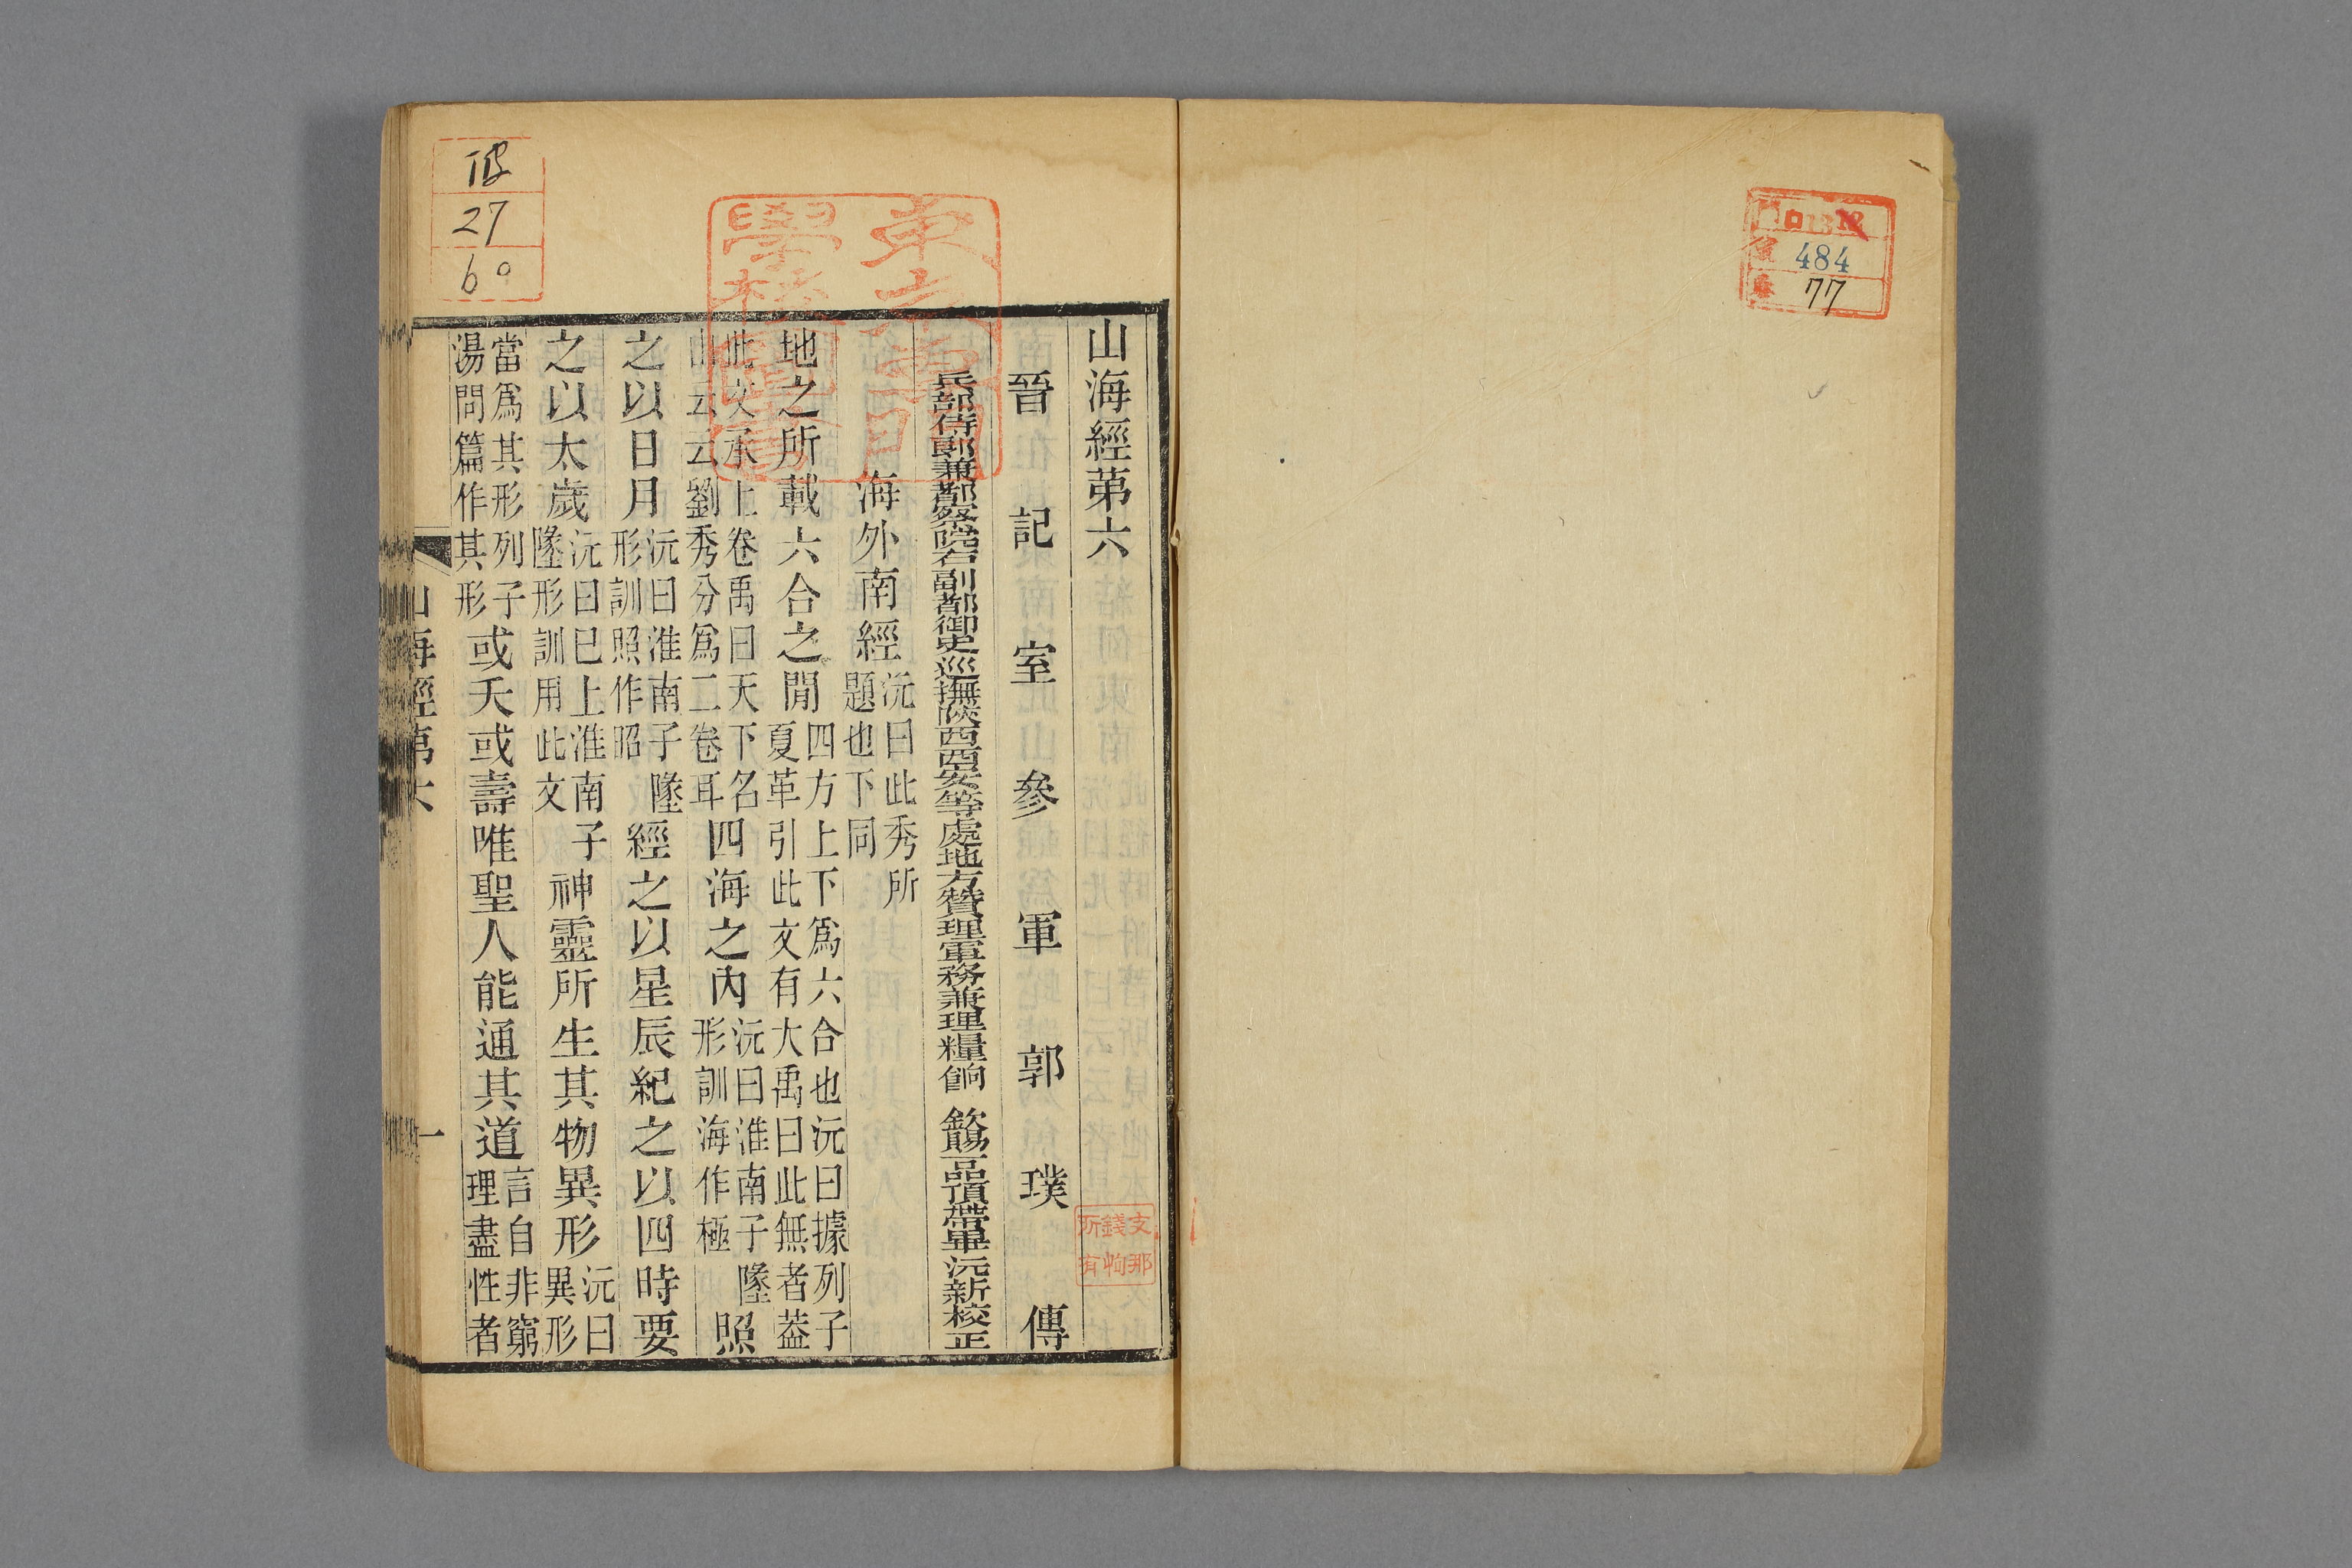 門 ロ13
號 484
卷 77
山海經苐六
晉記室參軍郭璞傳
兵部侍郎兼都察院右副都御史巡撫陝西西安等處地方贊理軍務兼理糧餉 欽賜一品頂帶畢沅新校正
海外南經沅曰此秀所題也下同
地之所載六合之閒四方上下爲六合也沅曰據列子夏革引此文有大禹曰此無者葢
此文承上卷禹曰天下名山云云劉秀分爲二卷耳四海之內沅曰淮南子墬形訓海作極照
之以日月沅曰淮南子墬形訓照作昭經之以星辰紀之以四時要
之以太歲沅曰已上淮南子墬形訓用此文神靈所生其物異形沅曰異形
當爲其形列子湯問篇作其形或夭或壽唯聖人能通其道言自非窮理盡性者
山海經第六 一
東京專門學校圖書
支那錢恂所有
27
60